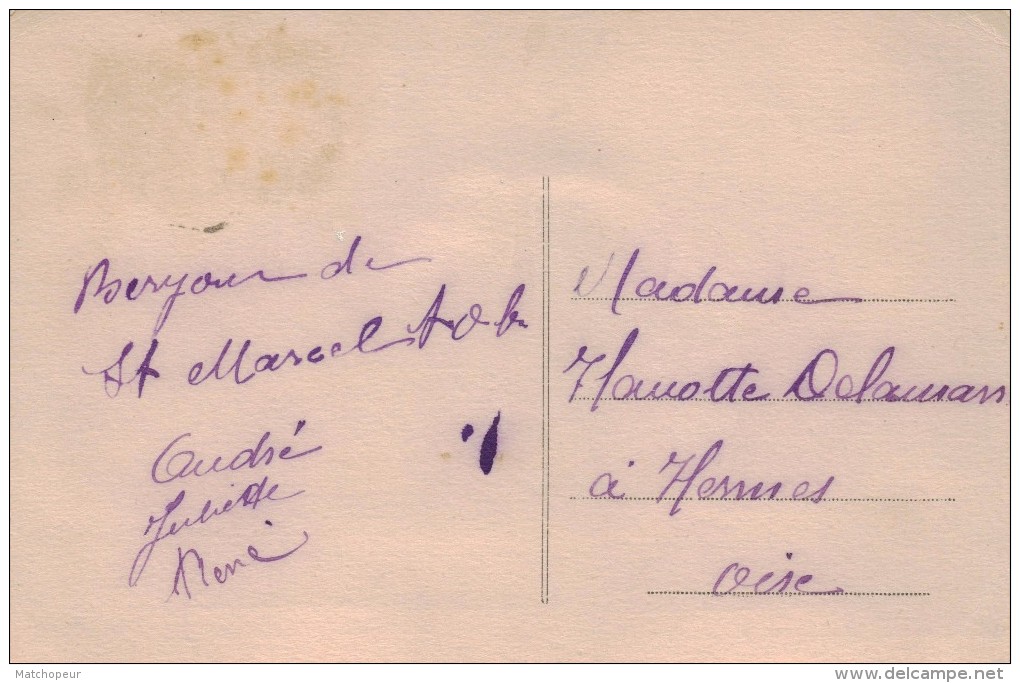 Bonjour de
St Marcel
André
Juliette
René
Madame
Hanotte Delamarr
à Hermes
oise
Matchopeur
delcampe.net